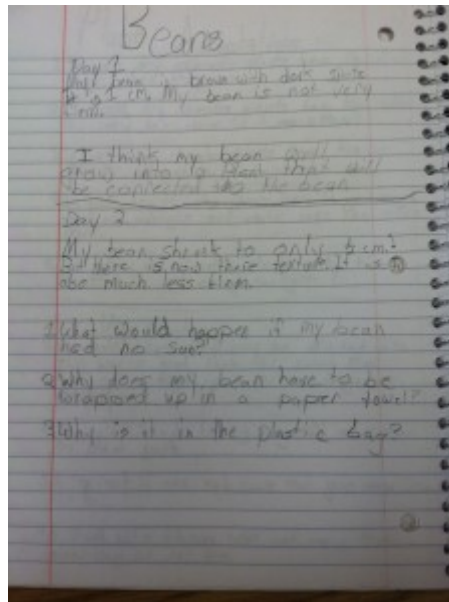 Beans
Day 1
My bean is brown with dark spots
It is 1 cm. My bean is not very
I think my bean will
grow into a plant that will
be connected to the bean
Day 2
My bean shrunk to only cm.
there is now more texture. It is
much less
1. What would happen if my bean
had no sun?
2. Why does my bean have to be
wrapped up in a paper towel?
3. Why is it in the plastic bag?